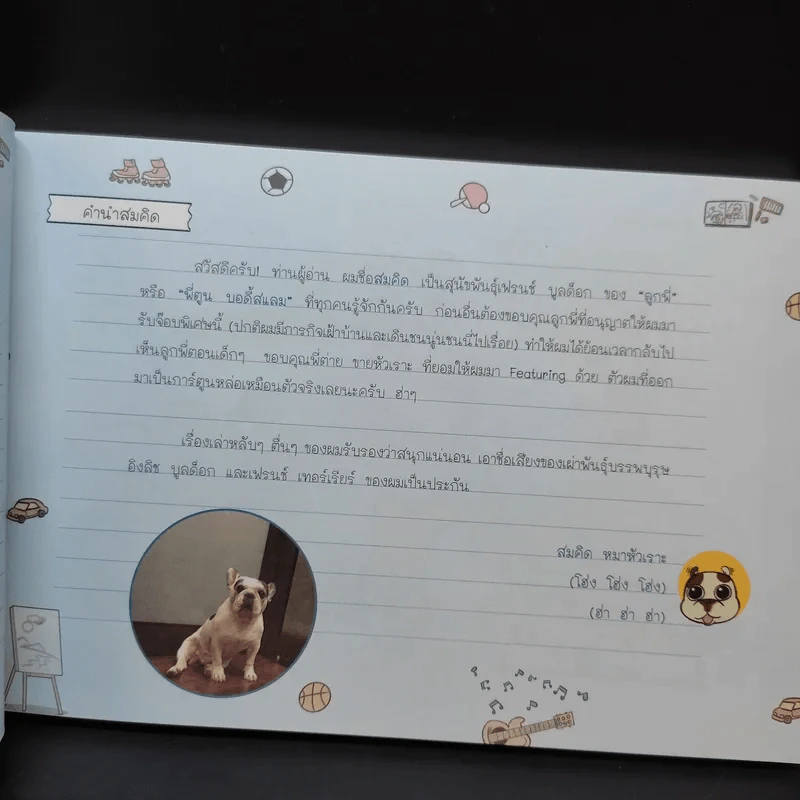 คำนำสมคิด
สวัสดีครับ! ท่านผู้อ่าน ผมชื่อสมคิด เป็นสุนัขพันธุ์เฟรนช์ บูลด็อก ของ “ลูกพี่”
หรือ “พี่ตูน บอดี้สแลม” ที่ทุกคนรู้จักกันครับ ก่อนอื่นต้องขอบคุณลูกพี่ที่อนุญาตให้ผมมา
รับจ๊อบพิเศษนี้ (ปกติผมมีภารกิจเฝ้าบ้านและเดินชนนู่นชนนี่ไปเรื่อย) ทำให้ผมได้ย้อนเวลากลับไป
เห็นลูกพี่ตอนเด็กๆ ขอบคุณพี่ต่าย ขายหัวเราะ ที่ยอมให้ผมมา Featuring ด้วย ตัวผมที่ออก
มาเป็นการ์ตูนหล่อเหมือนตัวจริงเลยนะครับ ฮ่าๆ
เรื่องเล่าหลับๆ ตื่นๆ ของผมรับรองว่าสนุกแน่นอน เอาชื่อเสียงของเผ่าพันธุ์บรรพบุรุษ
อิงลิช บูลด็อก และเฟรนช์ เทอร์เรียร์ ของผมเป็นประกัน
สมคิด หมาหัวเราะ
(โฮ่ง โฮ่ง โฮ่ง)
(ฮ่า ฮ่า ฮ่า)